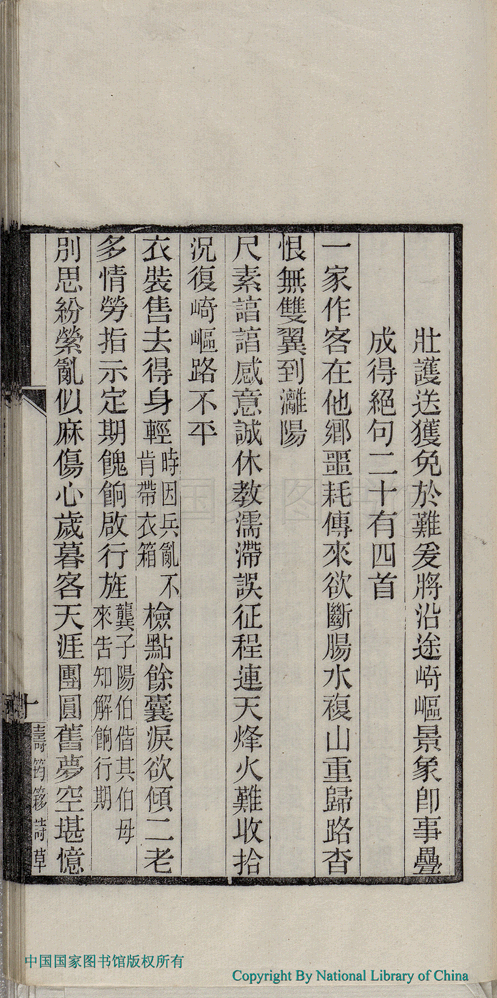 壯護送獲免於難爰將沿途崎嶇景象卽事疊
成得絕句二十有四首
一家作客在他鄉噩耗傳來欲斷腸水複山重歸路杳
恨無雙翼到灕陽
尺素諳諳感意誠休教濡滯誤征程連天烽火難收拾
況復崎嶇路不平
衣裝售去得身輕時因兵亂不肯帶衣箱檢點餘囊淚欲傾二老
多情勞指示定期餽餉啟行旌龔子陽伯偕其伯母來告知解餉行期
別思紛縈亂似麻傷心歲暮客天涯團圓舊夢空堪憶
十
壽筠簃詩草
中国国家图书馆版权所有
Copyright By National Library of China